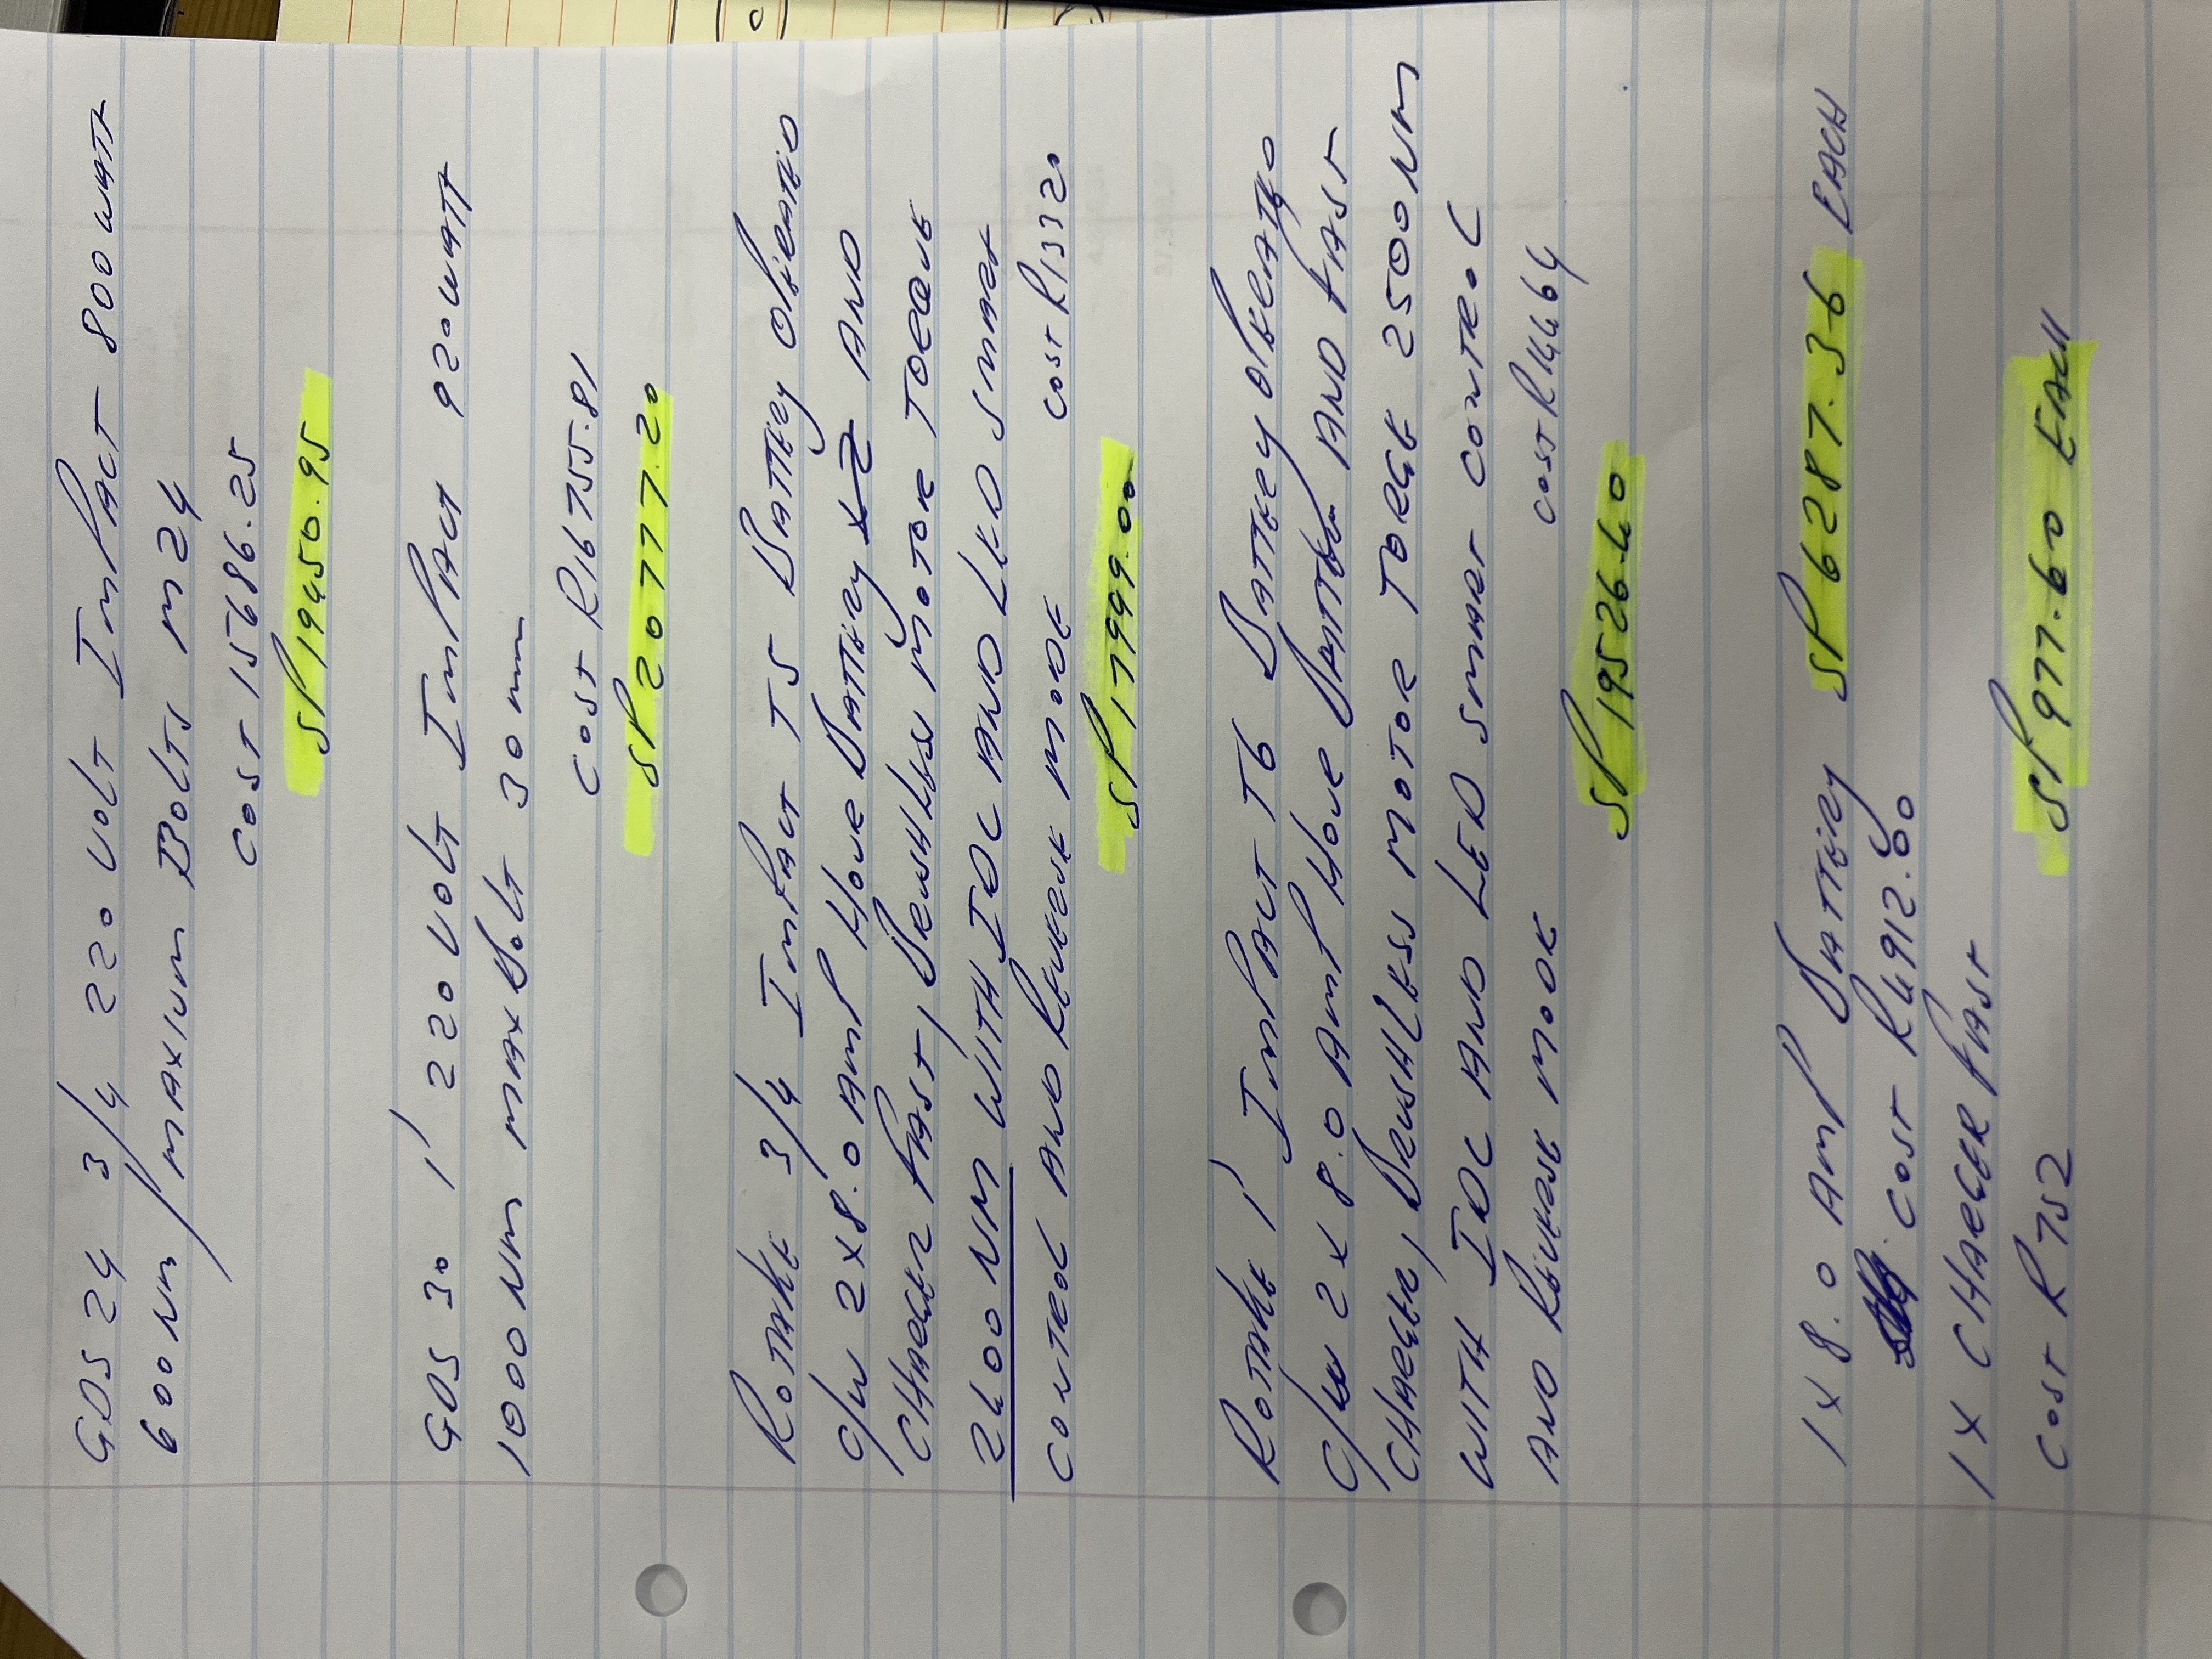 GDS 24 3/4 220 VOLT IMPACT 800 WATT
600 NM / MAXIUM BOLTS M24
COST 15686.25
SP 19450.95
GDS 30 1' 220 VOLT IMPACT 920 WATT
1000 NM MAX BOLT 30mm
COST R16755.81
SP 20777.20
ROTAKE 3/4 IMPACT T5 BATTERY OPERATED
C/W 2X8.0 AMP HOUR BATTERY X2 AND
CHARGER FAST, BRUSHLESS MOTOR TORQUE
2400 NM WITH IDC AND LED SMART
CONTROL AND REVERSE MODE COST R13320
SP 17999.00
ROTAKE 1' IMPACT T6 BATTERY OPERATED
C/W 2 X 8.0 AMP HOUR BATTERY AND FAST
CHARGER, BRUSHLESS MOTOR TORGE 2500 NM
WITH IDC AND LED SMART CONTROL
AND REVERSE MODE COST R14464
SP 19526.40
1X 8.0 AMP BATTERY SP 6287.36 EACH
COST R4912.00
1X CHARGER FAST
COST R752 SP 977.60 EACH